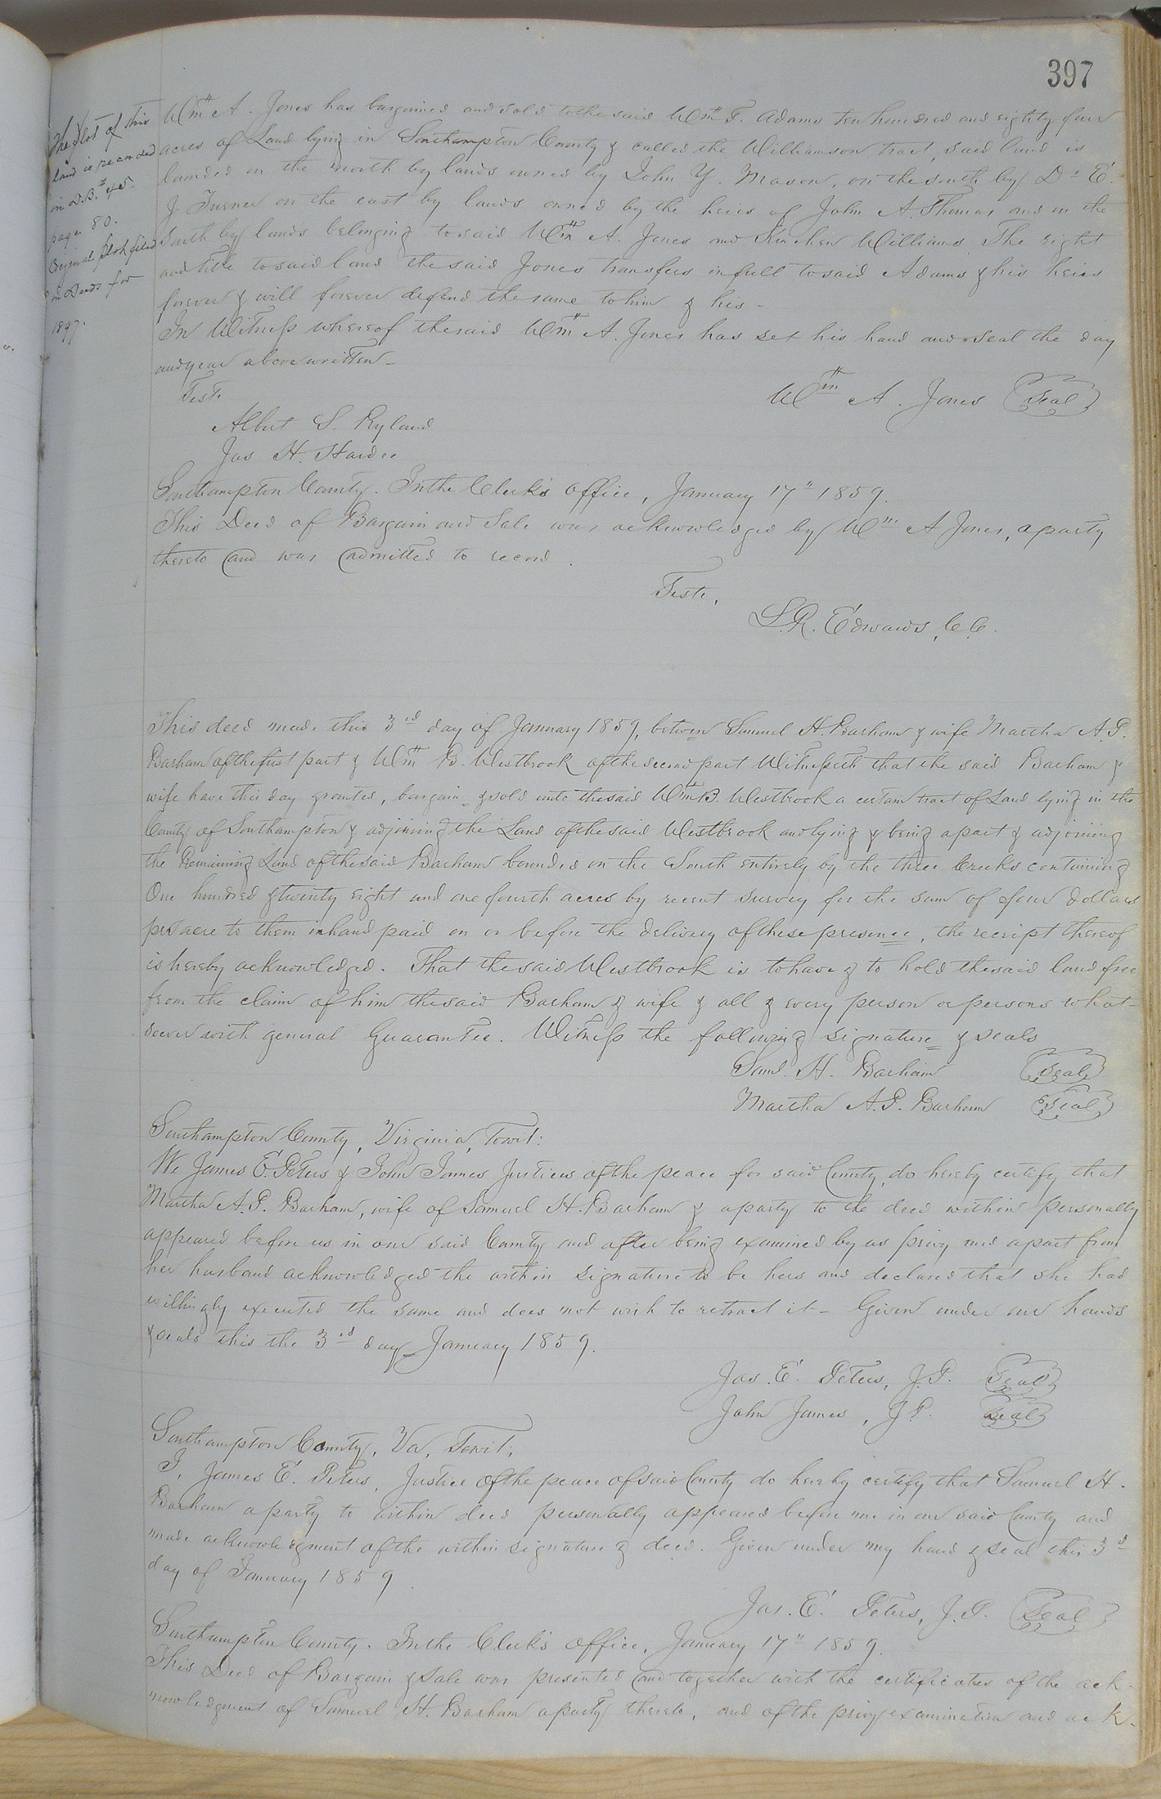 397
The Plot of this
land is recorded
in D.B. # 45.
page 80.
Original plot filed
in Deeds for
1897.
Wm. A. Jones has bargained and sold to the said Wm. F. Adams ten hundred and eighty four
acres of Land lying in Southampton County & called the Williamson tract, said land is
bounded on the north by lands owned by John Y. Mason, on the south by Dr. E.
J. Turner on the east by lands owned by the heirs of John A. Thomas and on the
South by lands belonging to said Wm. A. Jones and Kinchen Williams The right
and title to said land the said Jones transfers in full to said Adams & his heirs
forever & will forever defend the same to him & his -
In Witness whereof the said Wm. A. Jones has set his hand and seal the day
and year above written -
Test.
Wm. A. Jones (Seal)
Albert S. Ryland
Jas H. Hardee
Southampton County. In the Clerk's office, January 17" 1859.
This Deed of Bargain and Sale was acknowledged by Wm. A Jones, a party
thereto and was admitted to record.
Teste,
L.R. Edwards, C.C.
This deed made this 3rd day of January 1859, between Samuel H. Barham & wife Martha A.P.
Barham of the first part & Wm. B. Westbrook of the second part Witnesseth that the said Barham &
wife have this day granted, bargain & sold unto the said Wm. B. Westbrook a certain tract of Land lying in the
County of Southampton & adjoining the Land of the said Westbrook and lying & being a part & adjoining
the Remaining Land of the said Barham bounded on the South entirely by the three Creeks containing
One hundred & twenty eight and one fourth acres by recent survey for the sum of four dollars
per acre to them in hand paid on or before the delivery of these presence, the receipt thereof
is hereby acknowledged. That the said Westbrook is to have & to hold the said land free
from the claim of him the said Barham & wife & all & every person or persons what-
soever with general Guarantee. Witness the following signature & seals
Saml. H. Barham (Seal)
Martha A.P. Barham (Seal)
Southampton County, Virginia, Towit:
We James E. Peters & John James Justices of the peace for said County do hereby certify that
Martha A.P. Barham, wife of Samuel H. Barham & a party to the deed within personally
appeared before us in our said County and after being examined by us privy and apart from
her husband acknowledged the within signature to be hers and declared that she had
willingly executed the same and does not wish to retract it - Given under our hands
& seals this the 3rd day January 1859.
Jas. E. Peters, J.P. (Seal)
John James, J.P. (Seal)
Southampton County, Va, Towit,
I, James E. Peters, Justice of the peace of said County do hereby certify that Samuel H.
Barham a party to within deed personally appeared before me in our said County and
made acknowledgment of the within signature & deed. Given under my hand & seal this 3d
day of January 1859
Jas. E. Peters, J.P. (Seal)
Southampton County. In the Clerk's office, January 17" 1859
This Deed of Bargain & Sale was presented and together with the certificates of the ack-
nowledgment of Samuel H. Barham a party thereto, and of the privy examination and ack-